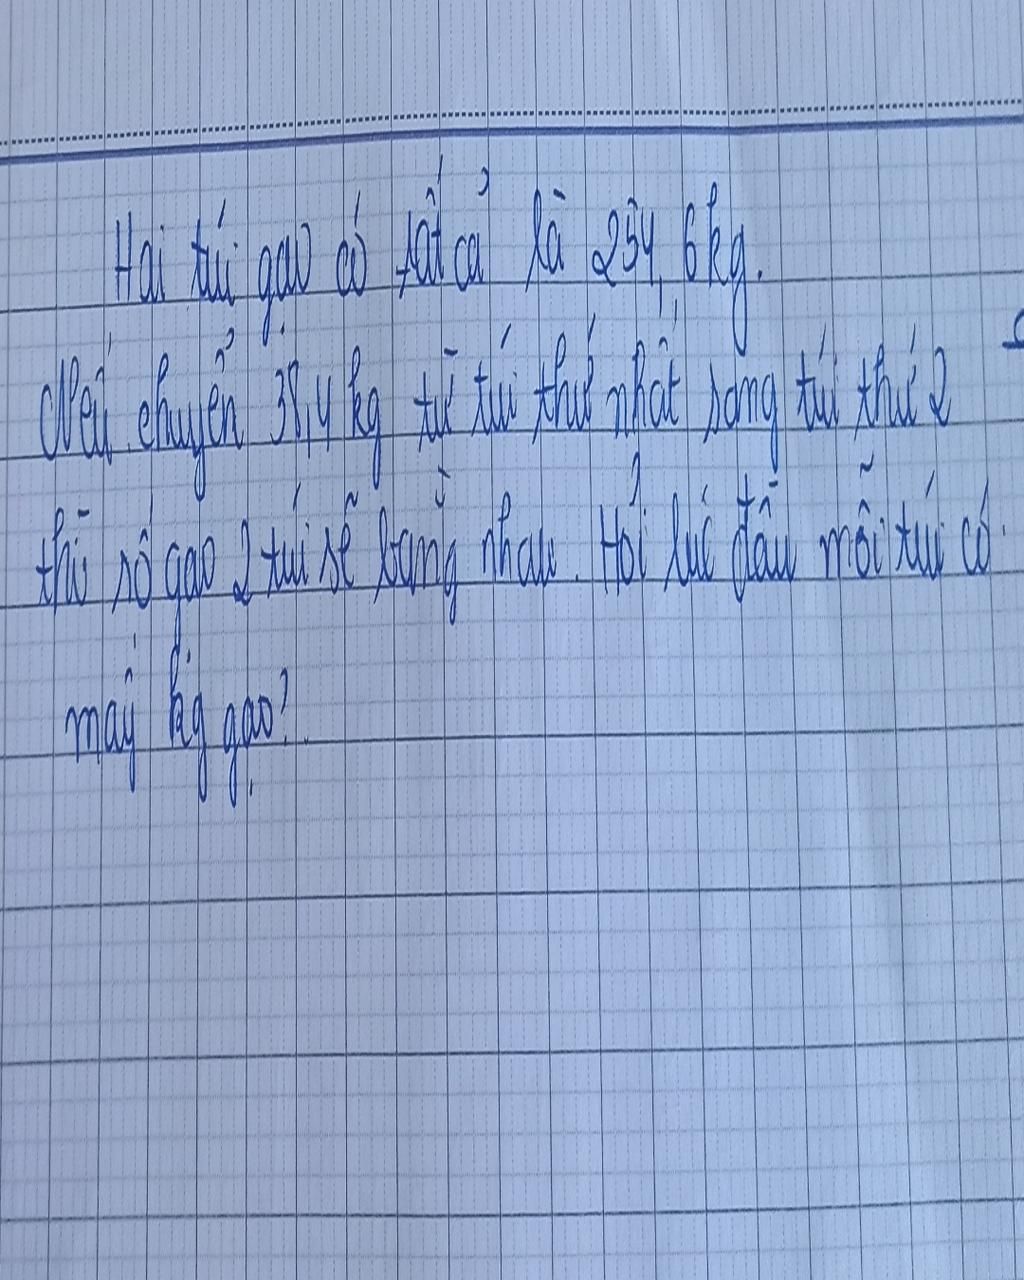 Hai túi gạo có tất cả là 254,6 kg.
Nếu chuyển 38,4 kg từ túi thứ nhất sang túi thứ 2
thì số gạo 2 túi sẽ bằng nhau. Hỏi lúc đầu mỗi túi có
mấy kg gạo?